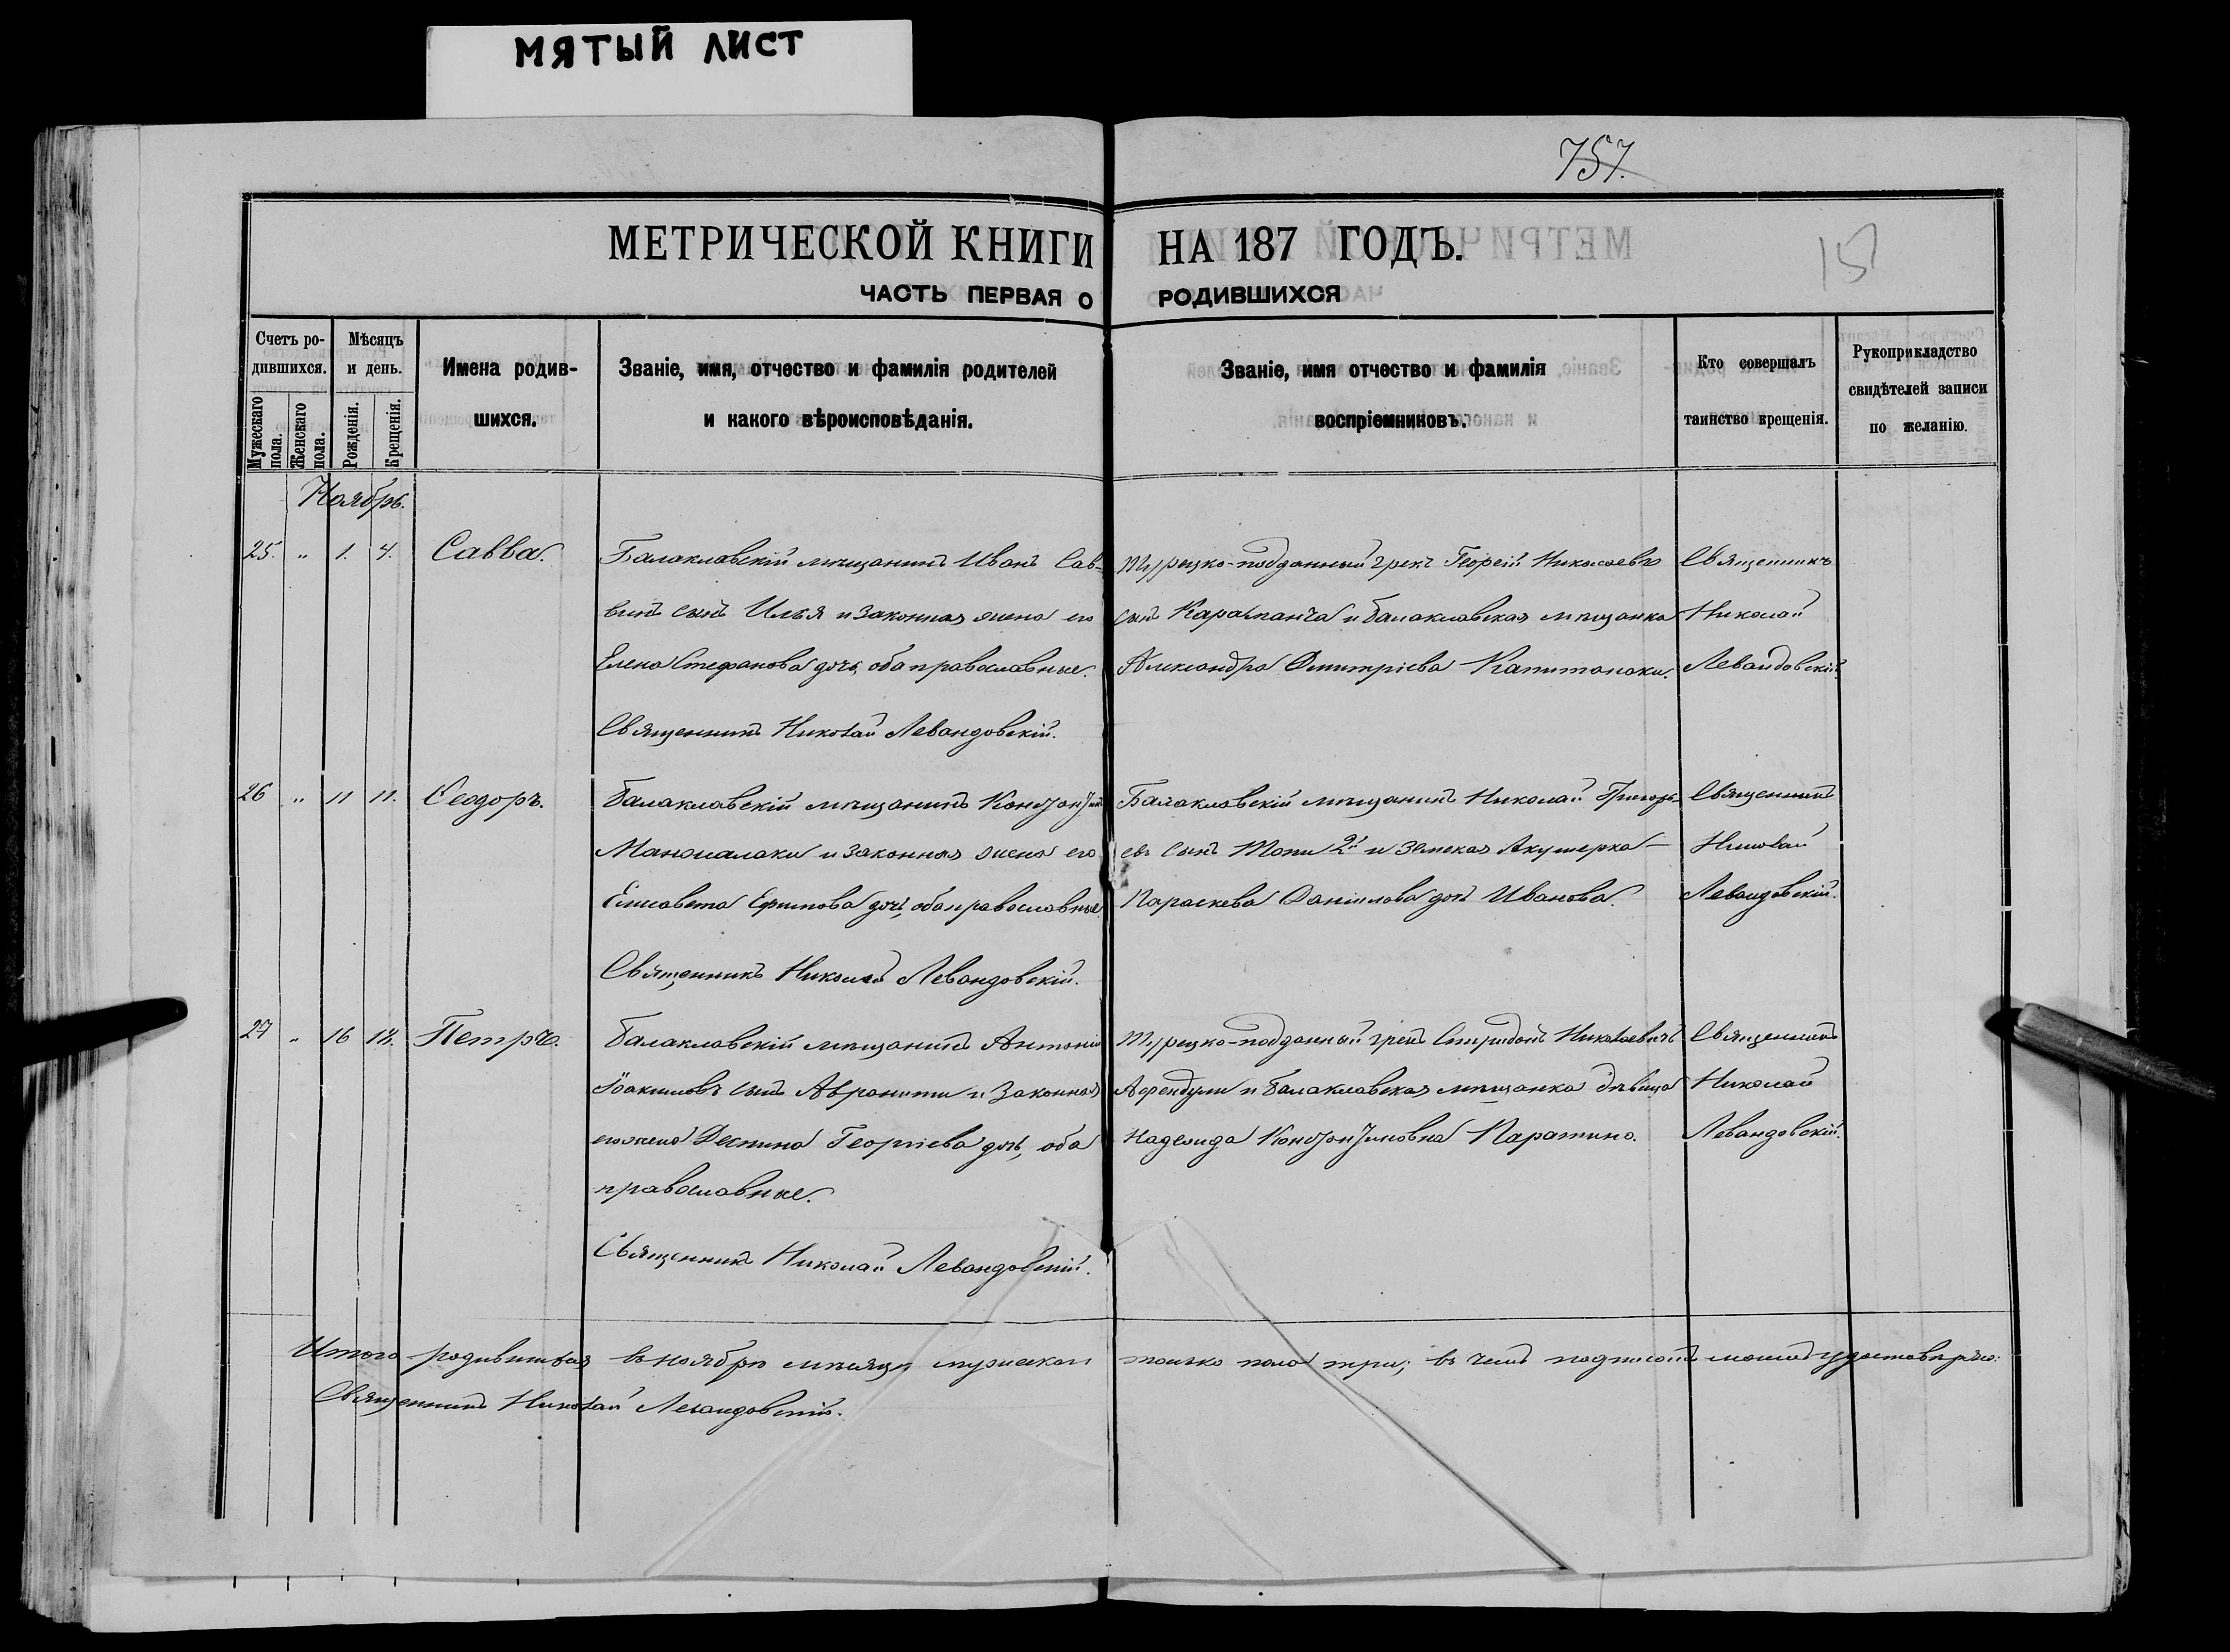 МЯТЫЙ ЛИСТ
757.
МЕТРИЧЕСКОЙ КНИГИ НА 187 ГОДЪ.
ЧАСТЬ ПЕРВАЯ О РОДИВШИХСЯ
Счетъ ро-
дившихся.
Мужескаго пола.
Женскаго пола.
Мѣсяцъ
и день.
Рожденія.
Крещенія.
Имена родив-
шихся.
Званіе, имя, отчество и фамилія родителей
и какого вѣроисповѣданія.
Званіе, имя отчество и фамилія
воспріемниковъ.
Кто совершалъ
таинство крещенія.
Рукоприкладство
свидѣтелей записи
по желанію.
Ноябрь.
25. " 1. 4. Савва.
Балаклавскій мѣщанинъ Иванъ Сав-
винъ сынъ Илья и законная жена его
Елена Стефанова дочь, оба православные.
Священникъ Николай Левандовскій.
Турецко-подданный грекъ Георгій Николаевъ
сынъ и балаклавская мѣщанка
Александра Димитріева Капитонаки.
Священникъ
Николай
Левандовскій.
26 " 11 11. Ѳеодоръ.
Балаклавскій мѣщанинъ Константинъ
Маномалаки и законная жена его
Елисавета Ефимова дочь, оба православные.
Священникъ Николай Левандовскій.
Балаклавскій мѣщанинъ Николай Григорь-
евъ сынъ Топи 2й и земская Акушерка
Параскева Даніилова дочь Иванова.
Священникъ
Николай
Левандовскій.
27 " 16 18. Петръ.
Балаклавскій мѣщанинъ Антоній
Іоакимовъ сынъ и законная
его жена Деспина Георгіева дочь, оба
православные.
Священникъ Николай Левандовскій.
Турецко-подданный грекъ Спиридонъ Николаевичъ
Афендули и Балаклавская мѣщанка дѣвица
Надежда Константиновна
Священникъ
Николай
Левандовскій.
Итого родившихся въ ноябрѣ мѣсяцѣ мужескаго только пола три; въ чемъ подписомъ моимъ удостовѣряю:
Священникъ Николай Левандовскій.